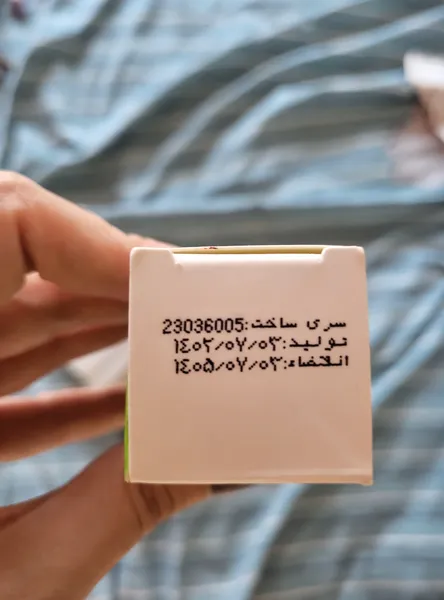 سری ساخت:23036005
تولید:۱٤۰۲/۰۷/۰۳
انقضاء:۱٤۰۵/۰۷/۰۳